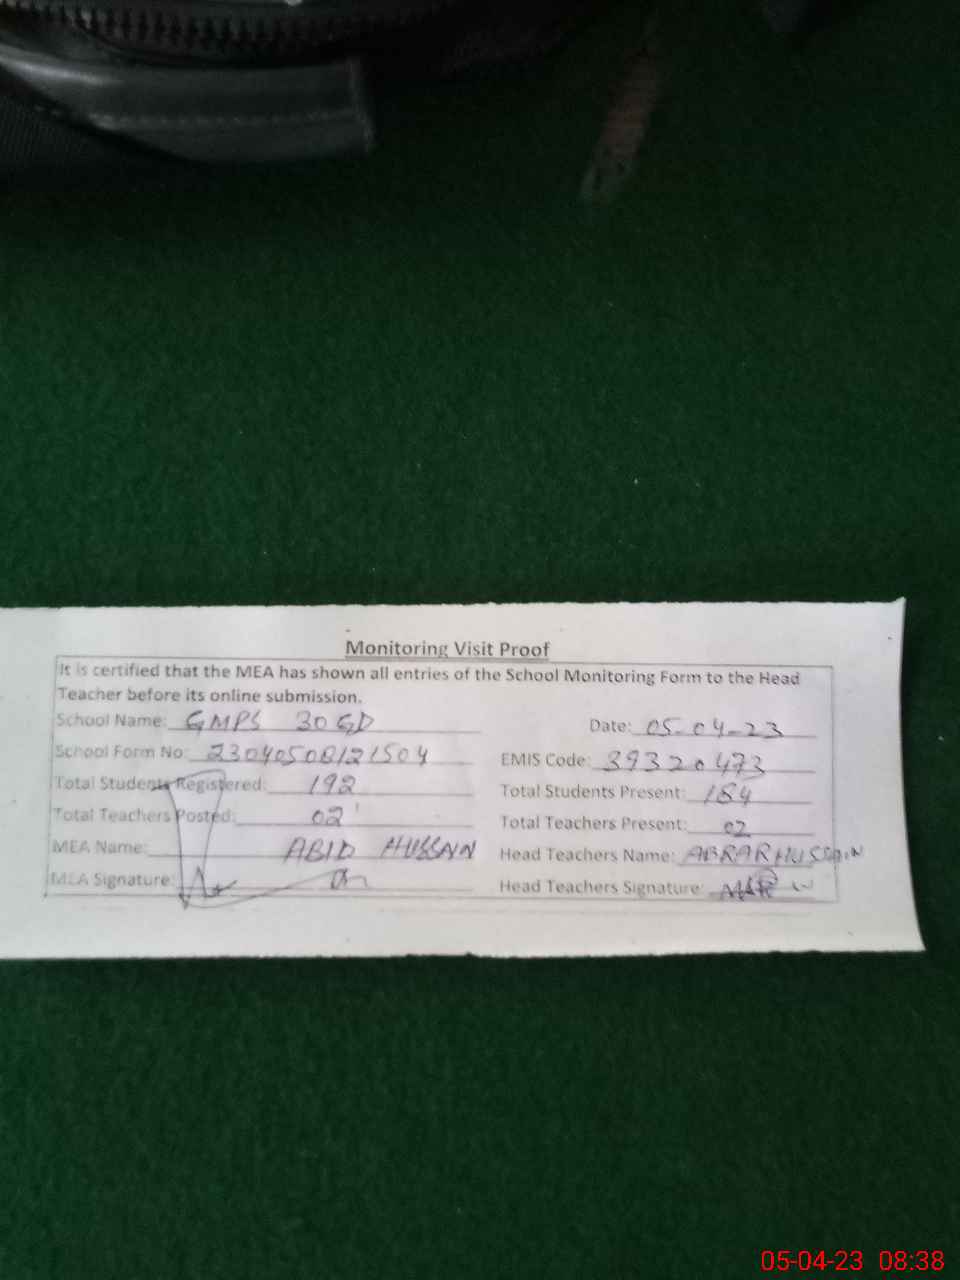 Monitoring Visit Proof
It is certified that the MEA has shown all entries of the School Monitoring Form to the Head
Teacher before its online submission.
School Name: GMPS 30 GD Date: 05-04-23
School Form No: 23040508121504 EMIS Code: 39320473
Total Students Registered: 192 Total Students Present: 184
Total Teachers Posted: 02 Total Teachers Present: 02
MEA Name: ABID HUSSAIN Head Teachers Name: ABRAR HUSSAIN
MEA Signature: Head Teachers Signature:
05-04-23 08:38